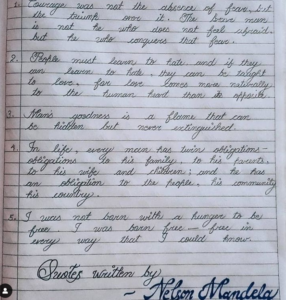 1. Courage was not the absence of fear, but
the triumph over it. The brave man
is not he who does not feel afraid,
but he who conquers that fear.
2. People must learn to hate and if they
can learn to hate, they can be taught
to love, for love comes more naturally
to the human heart than its opposite.
3. Man's goodness is a flame that can
be hidden but never extinguished.
4. In life, every man has twin obligations -
obligations to his family, to his parents,
to his wife and children; and he has
an obligation to the people, his community
his country.
5. I was not born with a hunger to be
free. I was born free - free in
every way that I could know.
Quotes written by
~ Nelson Mandela